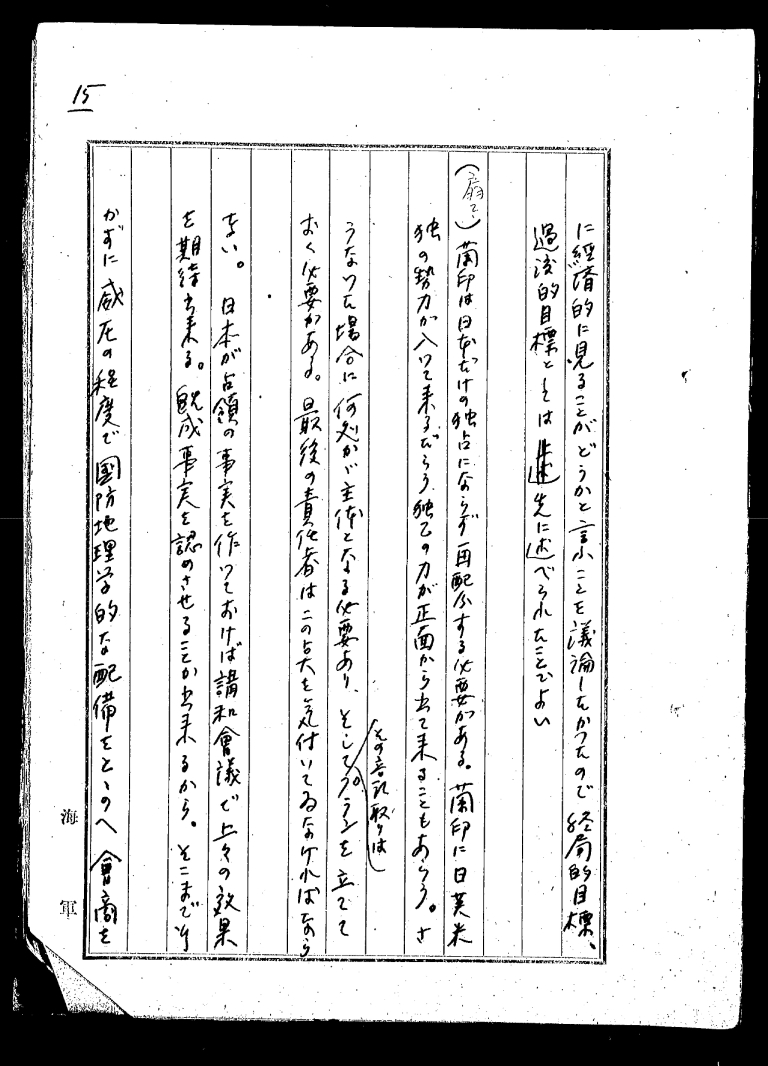 15
に経済的に見ることがどうかと言ふことを議論したかつたので 終局的目標、
過渡的目標としては 先に述べられたことでよい
蘭印は日本だけの独占にならず再配分する必要がある。蘭印に日英米
独の勢力が入つて来るだらう 独乙の力が正面から出て来ることもあらう。さ
うなつた場合に何処かゞ主体となる必要あり、そしてプランを立てて
その音頭取りは
おく必要がある。最後の責任者はこの点を気付いてゐなければなら
ない。日本が占領の事実を作つておけば講和會議で上々の効果
を期待出来る。既成事実を認めさせることが出来るから。そこまで行
かずに威圧の程度で國防地理学的な配備をとゝのへ 會商を
海軍